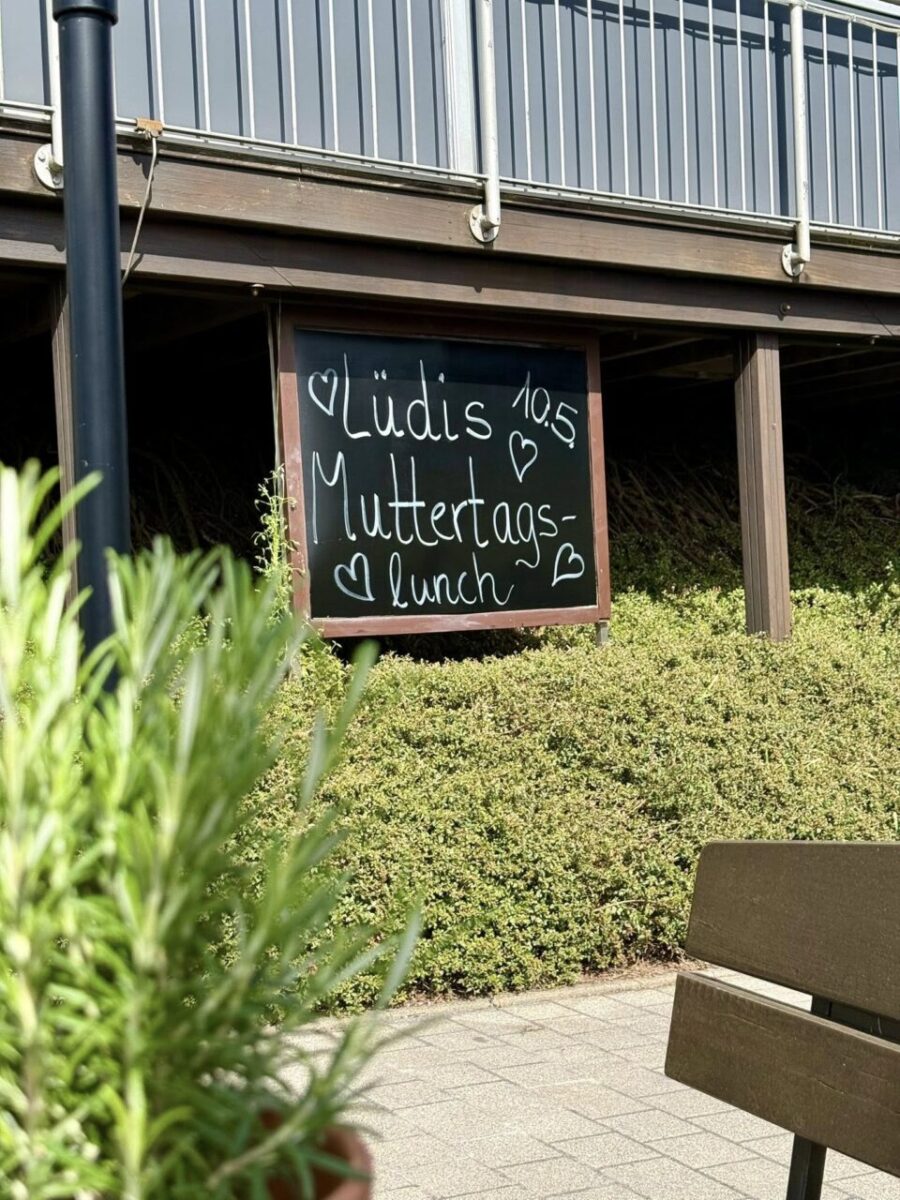 Lüdis 10.5.
Muttertags-
lunch